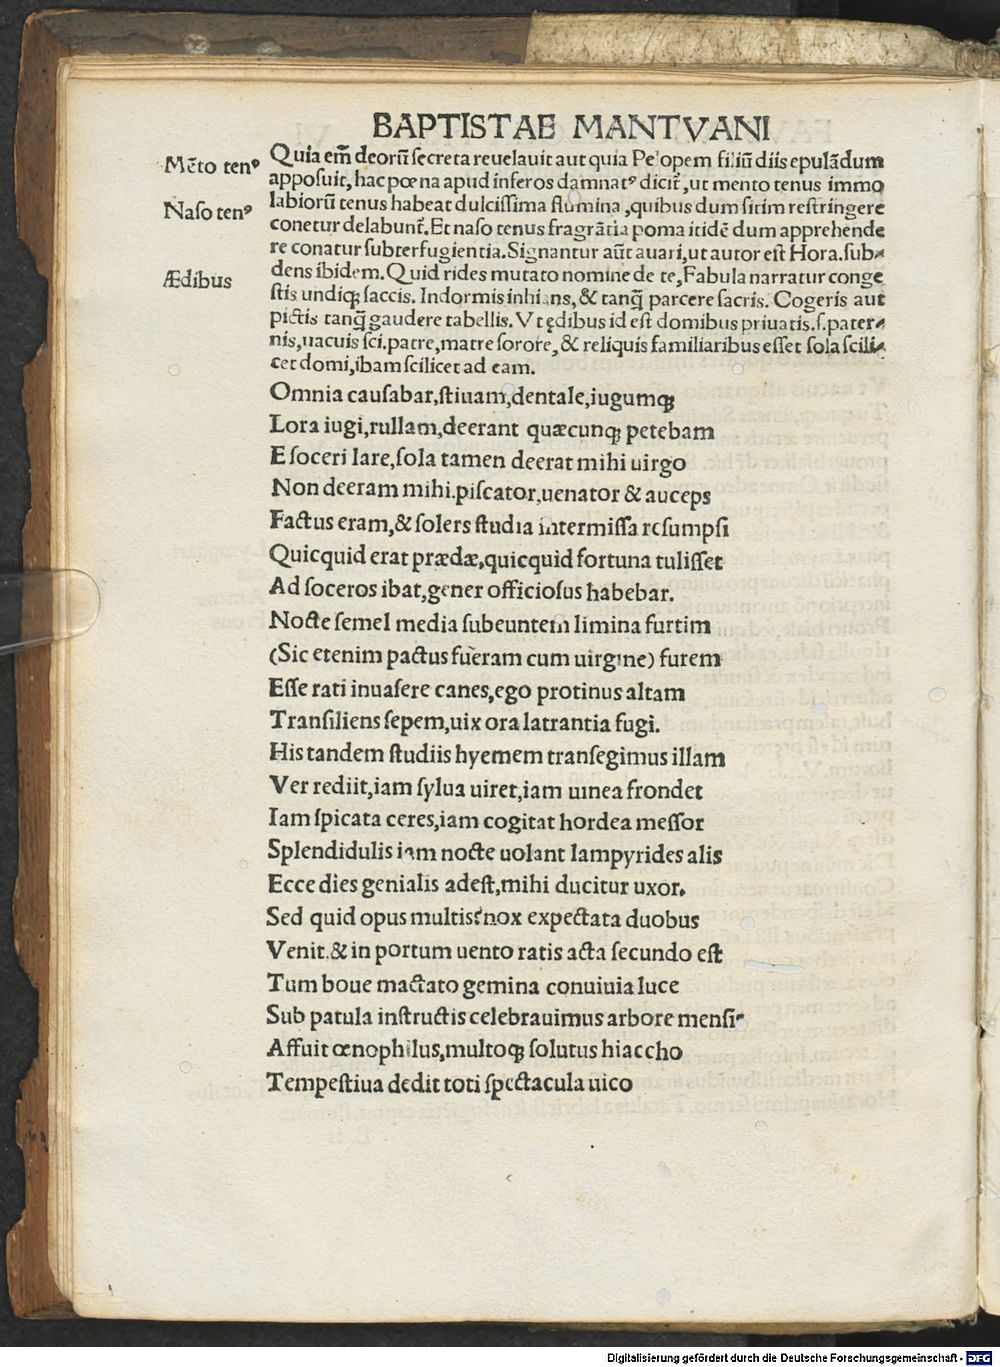 BAPTISTAE MANTVANI
Mẽto tenꝰ
Naſo tenꝰ
Ædibus
Quia em̃ deorũ ſecreta reuelauit aut quia Pelopem filiũ diis epulãdum
appoſuit, hac pœna apud inferos damnatꝰ dicit̃, ut mento tenus immo
labiorũ tenus habeat dulciſſima flumina, quibus dum ſitim reſtringere
conetur delabunt̃. Et naſo tenus fragrãtia poma itidẽ dum apprehende
re conatur ſubterfugientia. Signantur aũt auari, ut autor eſt Hora. ſub⸗
dens ibidem. Quid rides mutato nomine de te, Fabula narratur conge
ſtis undiqꝫ ſaccis. Indormis inhians, & tanq̃ parcere ſacris. Cogeris aut
pictis tanq̃ gaudere tabellis. Vt ędibus id eſt domibus priuatis. ſ. pater⸗
nis, uacuis ſci. patre, matre ſorore, & reliquis familiaribus eſſet ſola ſcili⸗
cet domi, ibam ſcilicet ad eam.
Omnia cauſabar, ſtiuam, dentale, iugumqꝫ
Lora iugi, rullam, deerant quæcunqꝫ petebam
E ſoceri lare, ſola tamen deerat mihi uirgo
Non deeram mihi. piſcator, uenator & auceps
Factus eram, & ſolers ſtudia intermiſſa reſumpſi
Quicquid erat prædæ, quicquid fortuna tuliſſet
Ad ſoceros ibat, gener officioſus habebar.
Nocte ſemel media ſubeuntem limina furtim
(Sic etenim pactus fueram cum uirgine) furem
Eſſe rati inuaſere canes, ego protinus altam
Tranſiliens ſepem, uix ora latrantia fugi.
His tandem ſtudiis hyemem tranſegimus illam
Ver rediit, iam ſylua uiret, iam uinea frondet
Iam ſpicata ceres, iam cogitat hordea meſſor
Splendidulis iam nocte uolant lampyrides alis
Ecce dies genialis adeſt, mihi ducitur uxor.
Sed quid opus multis? nox expectata duobus
Venit. & in portum uento ratis acta ſecundo eſt
Tum boue mactato gemina conuiuia luce
Sub patula inſtructis celebrauimus arbore menſiꝰ
Affuit œnophilus, multoqꝫ ſolutus hiaccho
Tempeſtiua dedit toti ſpectacula uico
Digitalisierung gefördert durch die Deutsche Forschungsgemeinschaft - DFG